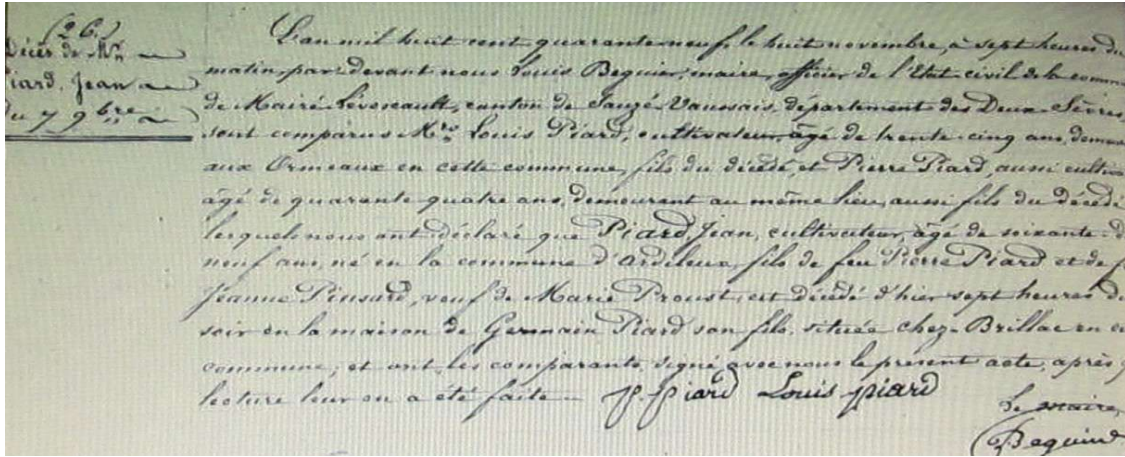 (26.)
Décès de Mr
Piard, Jean
du 7 9bre
L'an mil huit cent quarante neuf, le huit novembre, à sept heures du
matin, par devant nous Louis Beguier, maire, officier de l'Etat civil de la commune
de Mairé-Lévescault, canton de Sauzé-Vaussais, département des Deux-Sèvres,
sont comparus Mrs Louis Piard, cultivateur, âgé de trente-cinq ans, demeu
aux Ormeaux en cette commune, fils du décédé, et Pierre Piard, aussi cultiva
âgé de quarante quatre ans, demeurant au même lieu, aussi fils du décédé
lesquels nous ont déclaré que Piard Jean, cultivateur, âgé de soixante-d
neuf ans, né en la commune d'Ardilleux, fils de feu Pierre Piard et de f
Jeanne Pinsard, veuf de Marie Proust, est décédé d'hier sept heures du
soir en la maison de Germain Piard son fils, située chez-Brillac en c
commune, et ont les comparants signé avec nous le présent acte, après q
lecture leur en a été faite.
P. piard Louis piard
Le maire,
Beguier